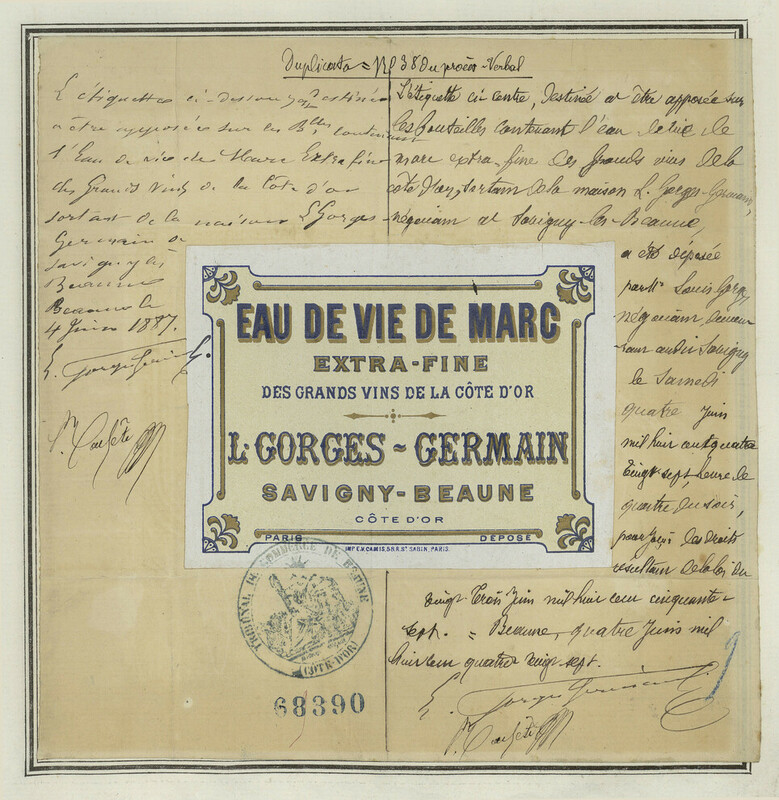 Duplicata = N° 38 du procès-Verbal
L'étiquette ci-dessous destinée
à être apposée sur les Blles contenant
l'Eau de vie de Marc Extra fine
des Grands Vins de la Côte d'or
sortant de la maison L Gorges
Germain de
Savigny lès
Beaune
Beaune le
4 Juin 1887.
L. Gorges Germain
L'étiquette ci contre, destinée à être apposée sur
les bouteilles contenant l'eau de vie de
marc extra-fine des Grands vins de la
côte d'or, sortant de la maison L. Gorges-Germain,
négociant à Savigny-les-Beaune,
a été déposée
par Mr Louis Gorges
négociant demeu
rant audit Savigny
le Samedi
quatre Juin
mil huit cent quatre
vingt sept heure de
quatre du soir,
pour jouir des droits
résultant de la loi du
vingt-trois Juin mil huit cent cinquante-
sept. = Beaune, quatre Juin mil
huit cent quatre vingt-sept.
L. Gorges Germain
EAU DE VIE DE MARC
EXTRA-FINE
DES GRANDS VINS DE LA CÔTE D'OR
L. GORGES-GERMAIN
SAVIGNY-BEAUNE
CÔTE D'OR
PARIS DÉPOSÉ
IMP. E.V. CAMIS, 5 & R. ST SABIN, PARIS.
TRIBUNAL DE COMMERCE DE BEAUNE
(CÔTE-D'OR)
68390